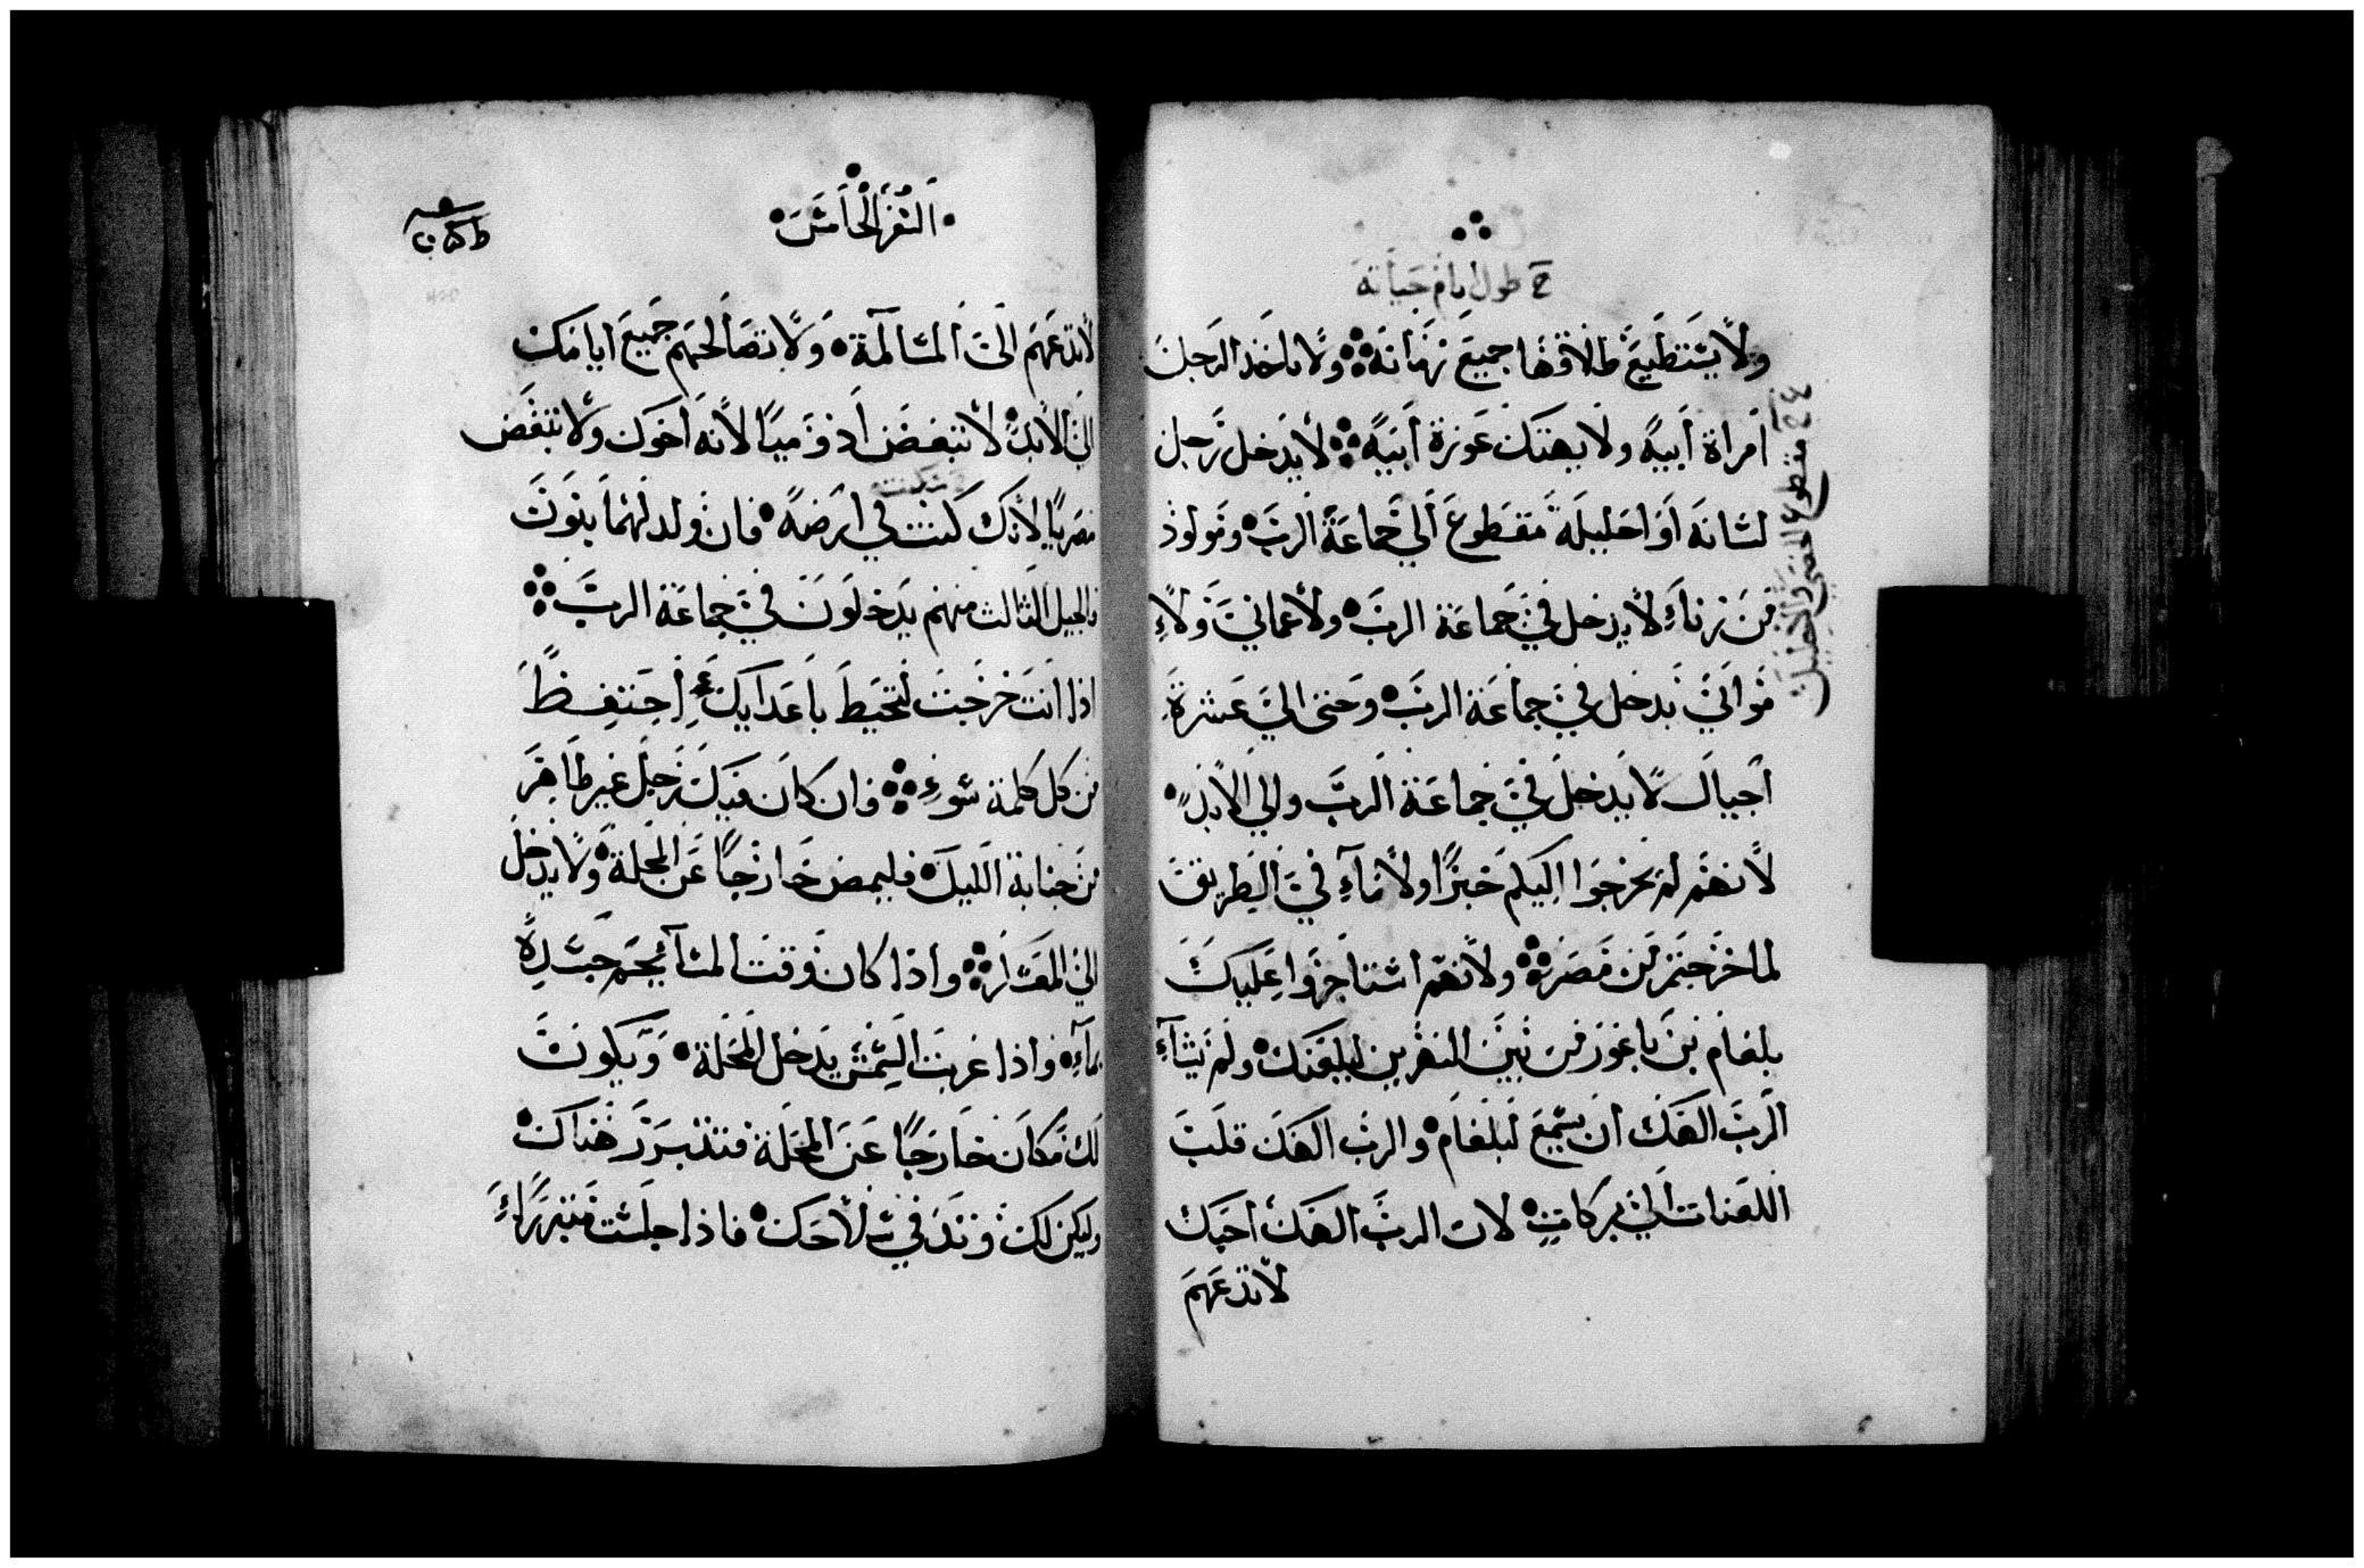 خ طول ايام حياته
ولا يستطيع طلاقها جميع زمانه ولا ياخذ الرجل
امراة ابيه ولا يهتك عورة ابيه لا يدخل رجل
لسانه او احليله مقطوع الي جماعة الرب ومولود
من زناء لا يدخل في جماعة الرب ولا عماني ولا
موابي يدخل في جماعة الرب وحتى الي عشرة
اجيال لا يدخل في جماعة الرب والي الابد
لانهم لم يخرجوا اليكم خبزا ولا ماء في الطريق
لما خرجتم من مصر ولانهم استاجروا عليك
بلعام بن باعور من بين النهرين ليلعنك ولم يشاء
الرب الهك ان يسمع لبلعام والرب الهك قلب
اللعنات الي بركات لان الرب الهك احبك
لا تدعهم
خ مقطوع الخصى والاحليل
السفر الخامس
لا تدعهم الى المسالمة ولا تصالحهم جميع ايامك
الي الابد لا تبغض ادوميا لانه اخوك ولا تبغض
مصريا لانك كنت في ارضه فان ولد لهما بنون
فالجيل الثالث منهم يدخلون في جماعة الرب
اذا انت خرجت لتحيط باعدايك احتفظ
من كل كلمة سوء فان كان فيك رجل غير طاهر
من جنابة الليل فليمض خارجا عن المحلة ولا يدخل
الي المعسكر واذا كان وقت المسآ يحم جسده
بماء واذا غربت الشمس يدخل المحلة ويكون
لك مكان خارجا عن المحلة فتتبرز هناك
وليكن لك وتد في سلاحك فاذا جلست متبرزاً